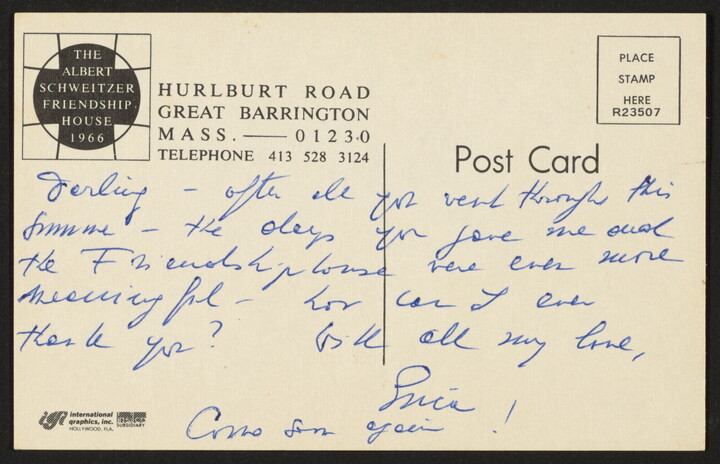 THE
ALBERT
SCHWEITZER
FRIENDSHIP
HOUSE
1966
HURLBURT ROAD
GREAT BARRINGTON
MASS. — 01230
TELEPHONE 413 528 3124
PLACE
STAMP
HERE
R23507
Post Card
Darling – after all you went through this
Summer – the days you gave me and
the Friendshiphouse were even more
meaningful – how can I ever
thank you? With all my love,
Erica
Come soon again!
international
graphics, inc.
HOLLYWOOD, FLA.
SUBSIDIARY